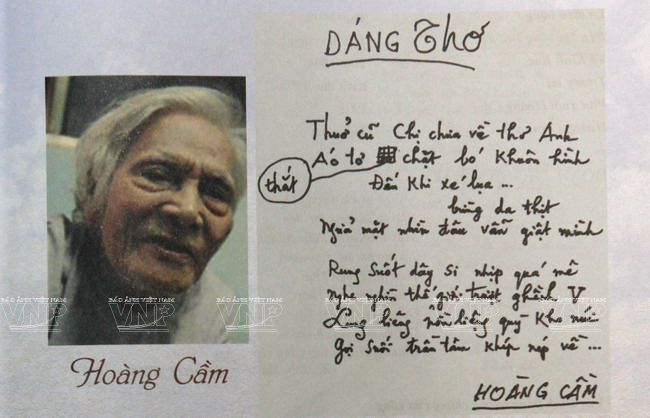 DÁNG Thơ
Thuở cũ Chị chưa về thơ Anh
Áo tơ chặt bó khuôn hình
thắt
Đến khi xé lụa ...
bừng da thịt
Ngửa mặt nhìn đâu vẫn giật mình
Rung suốt dây si nhịp quá mê
nhìn thế
Lúng liếng
Gọi suối trần tâm khép nép về ...
HOÀNG CẦM
Hoàng Cầm
BÁO ẢNH VIỆT NAM
VNP
BÁO ẢNH VIỆT NAM
VNP
BÁO ẢNH VIỆT NAM
VNP
BÁO ẢNH VIỆT NAM
VNP
BÁO ẢNH VIỆT NAM
VNP